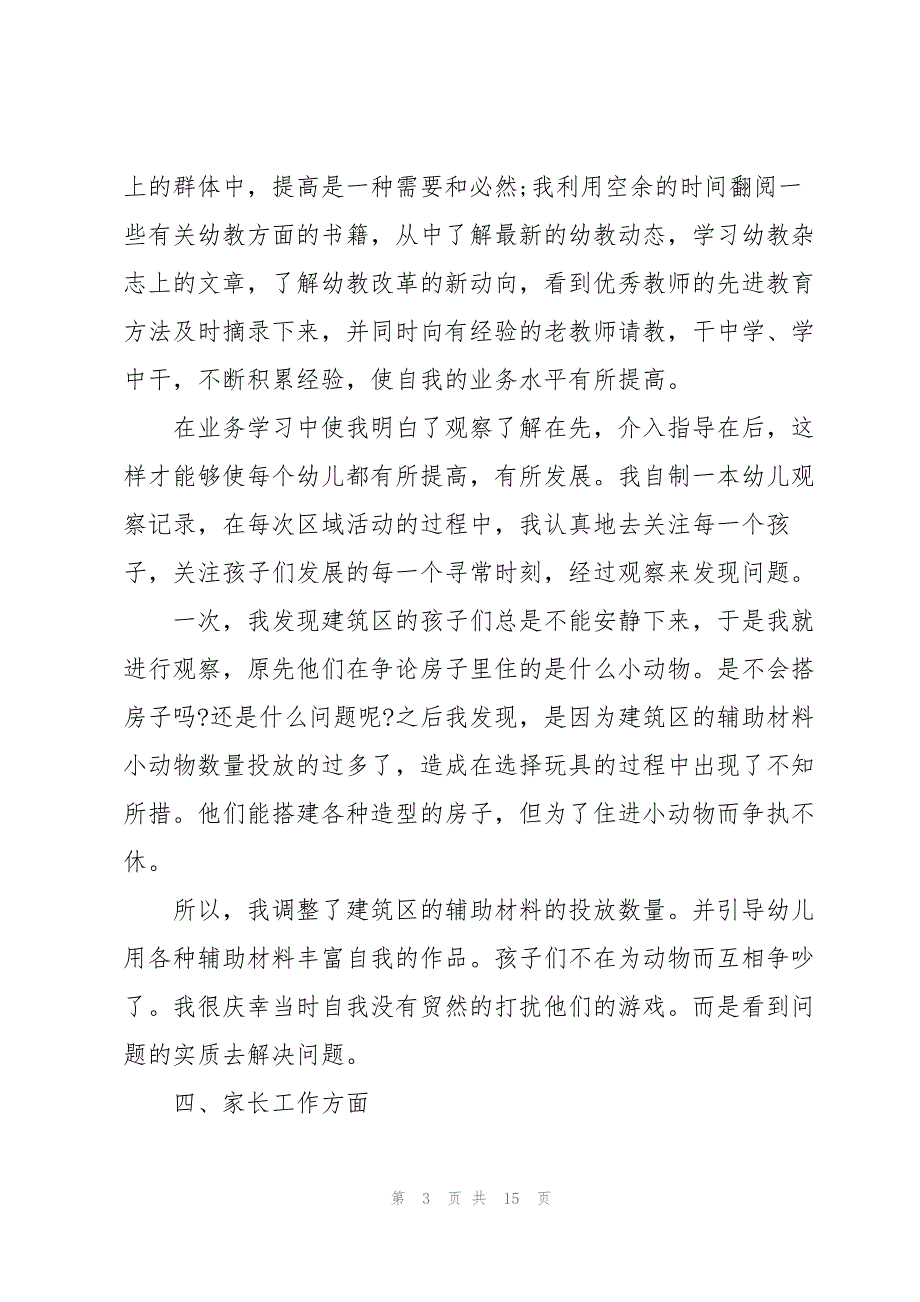 上的群体中，提高是一种需要和必然;我利用空余的时间翻阅一
些有关幼教方面的书籍，从中了解最新的幼教动态，学习幼教杂
志上的文章，了解幼教改革的新动向，看到优秀教师的先进教育
方法及时摘录下来，并同时向有经验的老教师请教，干中学、学
中干，不断积累经验，使自我的业务水平有所提高。
在业务学习中使我明白了观察了解在先，介入指导在后，这
样才能够使每个幼儿都有所提高，有所发展。我自制一本幼儿观
察记录，在每次区域活动的过程中，我认真地去关注每一个孩
子，关注孩子们发展的每一个寻常时刻，经过观察来发现问题。
一次，我发现建筑区的孩子们总是不能安静下来，于是我就
进行观察，原先他们在争论房子里住的是什么小动物。是不会搭
房子吗?还是什么问题呢?之后我发现，是因为建筑区的辅助材料
小动物数量投放的过多了，造成在选择玩具的过程中出现了不知
所措。他们能搭建各种造型的房子，但为了住进小动物而争执不
休。
所以，我调整了建筑区的辅助材料的投放数量。并引导幼儿
用各种辅助材料丰富自我的作品。孩子们不在为动物而互相争吵
了。我很庆幸当时自我没有贸然的打扰他们的游戏。而是看到问
题的实质去解决问题。
四、家长工作方面
第 3 页 共 15 页